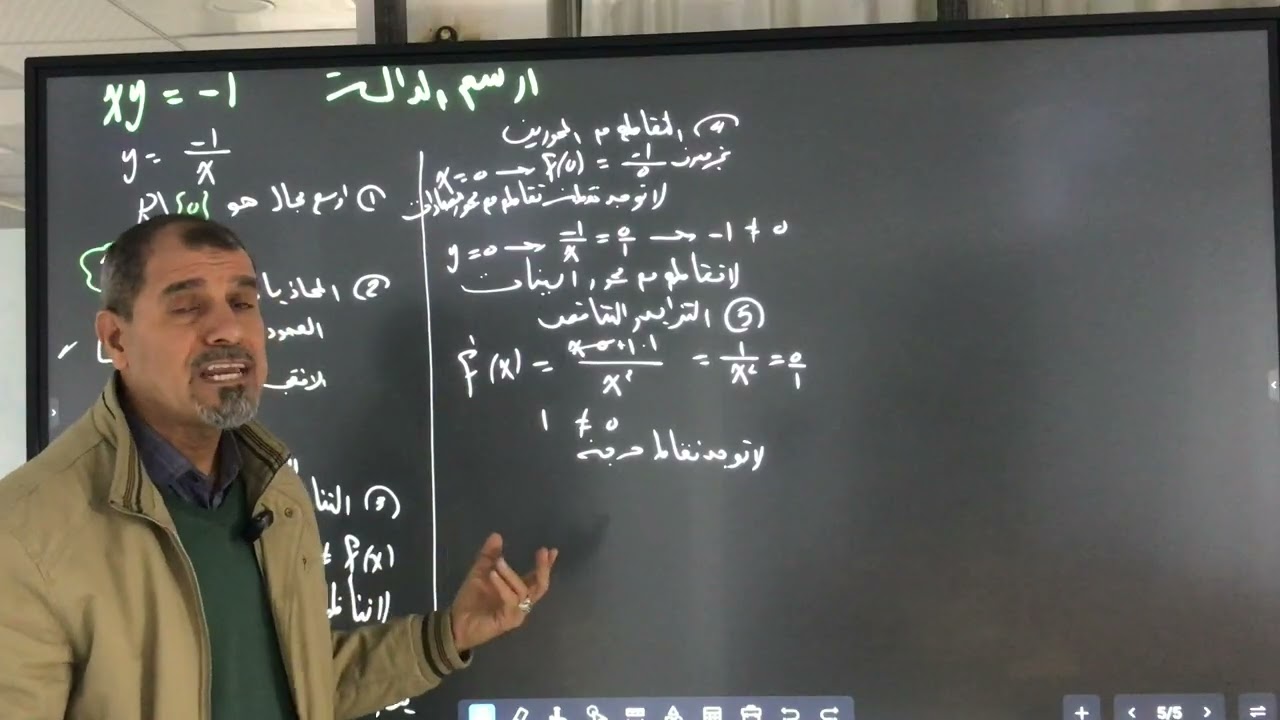 ارسم الدالة xy = -1
y = -1/x
① اوسع مجال هو R\{0}
② المحاذيا
العمود
الافق
③ التنا
f(x)
④ التقاطع مع المحورين
x = 0 → f(0) = -1/0
لا توجد نقطة تقاطع مع محور الصادات
y = 0 → -1/x = 0/1 → -1 ≠ 0
لا تقاطع مع محور السينات
⑤ التزايد والتناقص
f'(x) = x·0+1·1/x² = 1/x² = 0/1
1 ≠ 0
لا توجد نقاط حرجة
5/5